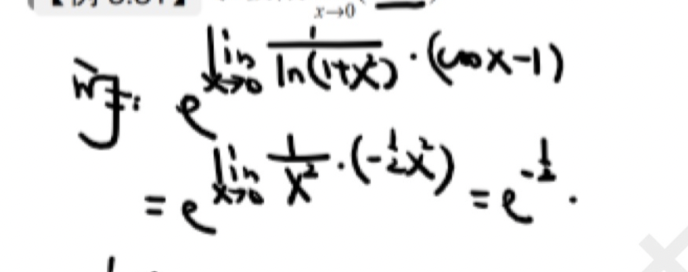 x→0
详: e^{lim_{x→0} \frac{1}{ln(1+x²)}·(cosx-1)}
= e^{lim_{x→0} \frac{1}{x²}·(-\frac{1}{2}x²)} = e^{-\frac{1}{2}}.